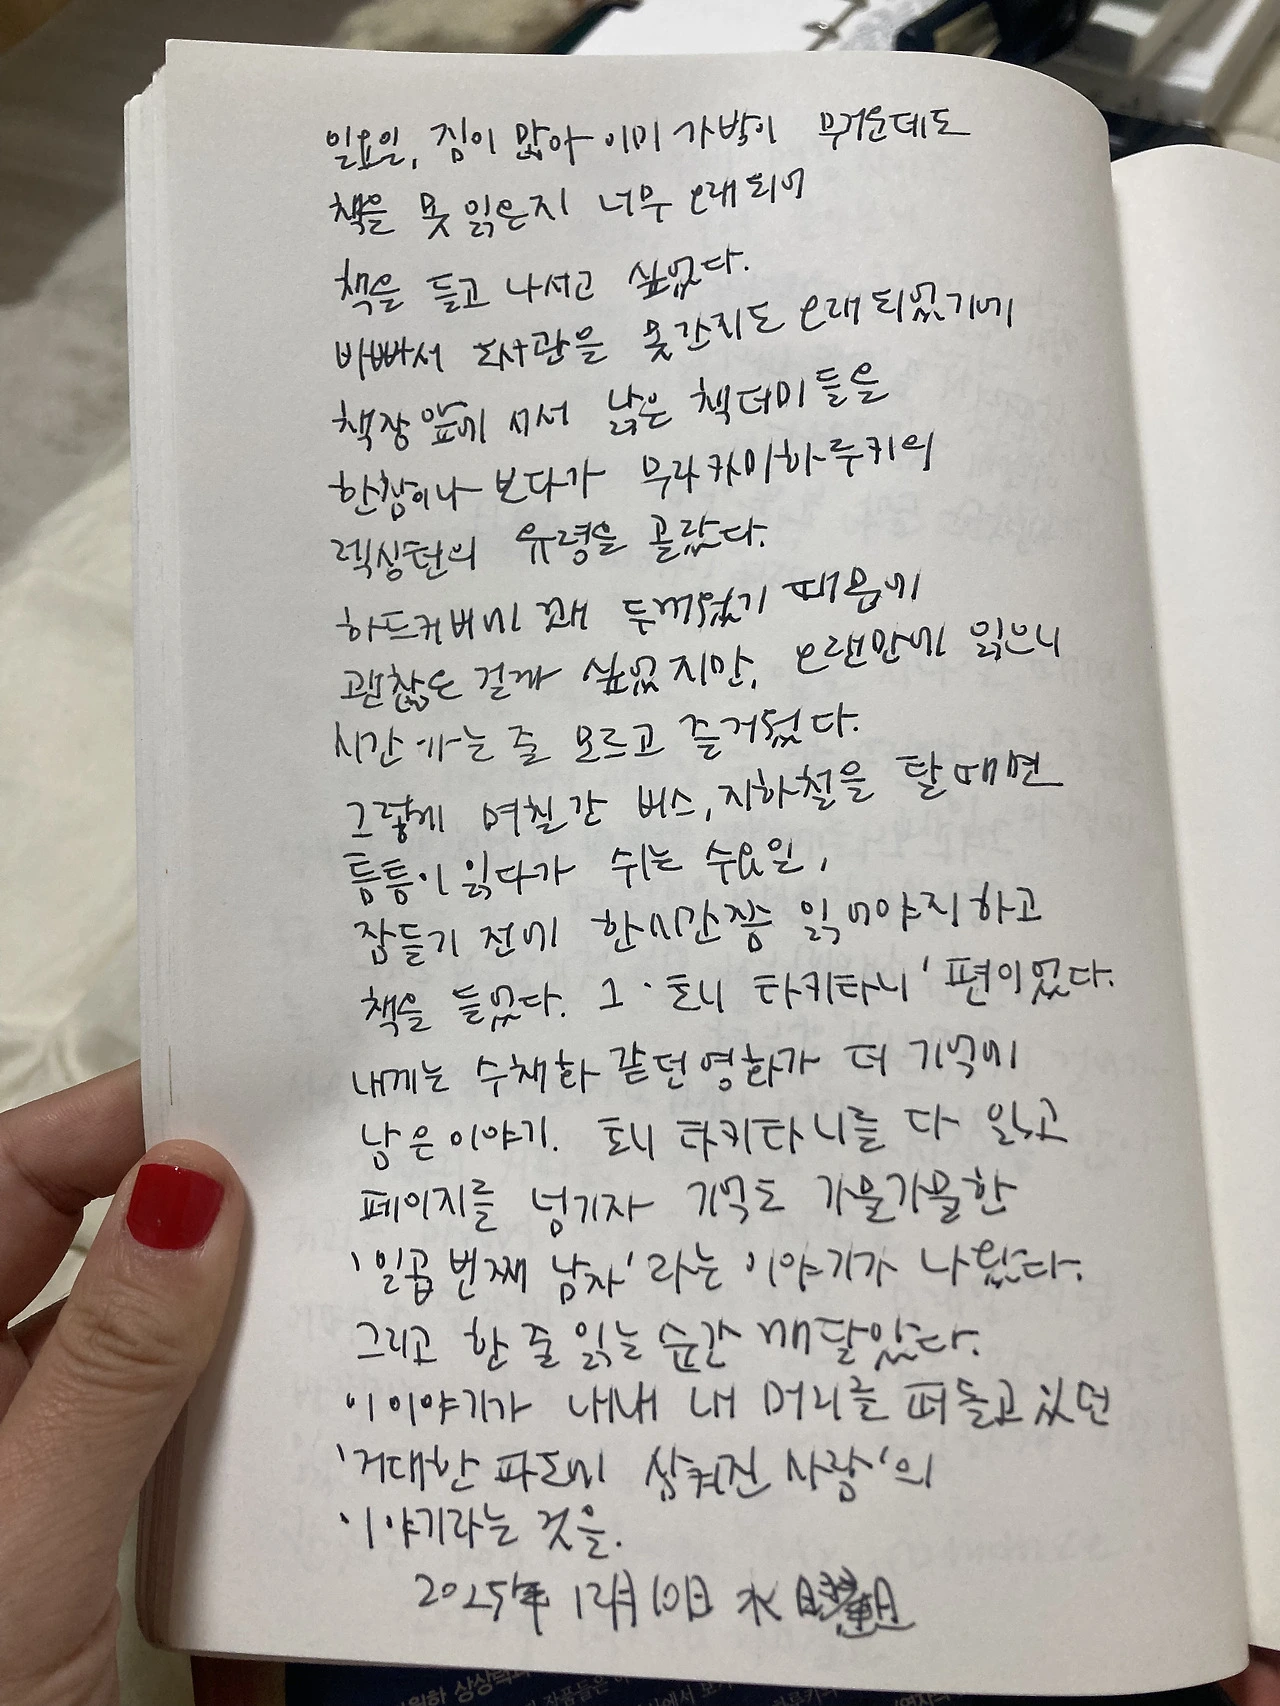 일요일, 짐이 많아 이미 가방이 무거운데도
책을 못 읽은지 너무 오래되어
책을 들고 나서고 싶었다.
바빠서 도서관을 못간지도 오래되었기에
책장 앞에 서서 낡은 책더미들을
한참이나 보다가 무라카미하루키의
렉싱턴의 유령을 골랐다.
하드커버에 꽤 두꺼웠기 때문에
괜찮은 걸까 싶었지만, 오랜만에 읽으니
시간 가는 줄 모르고 즐거웠다.
그렇게 며칠간 버스, 지하철을 탈때면
틈틈이 읽다가 쉬는 수요일,
잠들기 전에 한시간쯤 읽어야지하고
책을 들었다. 그 '토니 타키타니' 편이었다.
내게는 수채화 같던 영화가 더 기억에
남은 이야기. 토니 타키타니를 다 읽고
페이지를 넘기자 기억도 가물가물한
'일곱번째 남자'라는 이야기가 나왔다.
그리고 한 줄 읽는 순간 깨달았다.
이 이야기가 내내 내 머리를 떠돌고있던
'거대한 파도에 삼켜진 사람'의
이야기라는 것을.
2025年 12月 10日 水